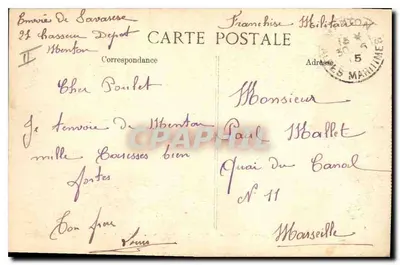 Envoie de Savarese
21 chasseur Depot
Menton
Franchise Militaire
CARTE POSTALE
Correspondance
Adresse
ALPES MARITIMES
Cher Poulet
Je t'envoie de Menton
mille Caresses bien
fortes
Ton frere
Louis
Monsieur
Paul Mallet
Quai du Canal
N° 11
Marseille
CPAPHIL